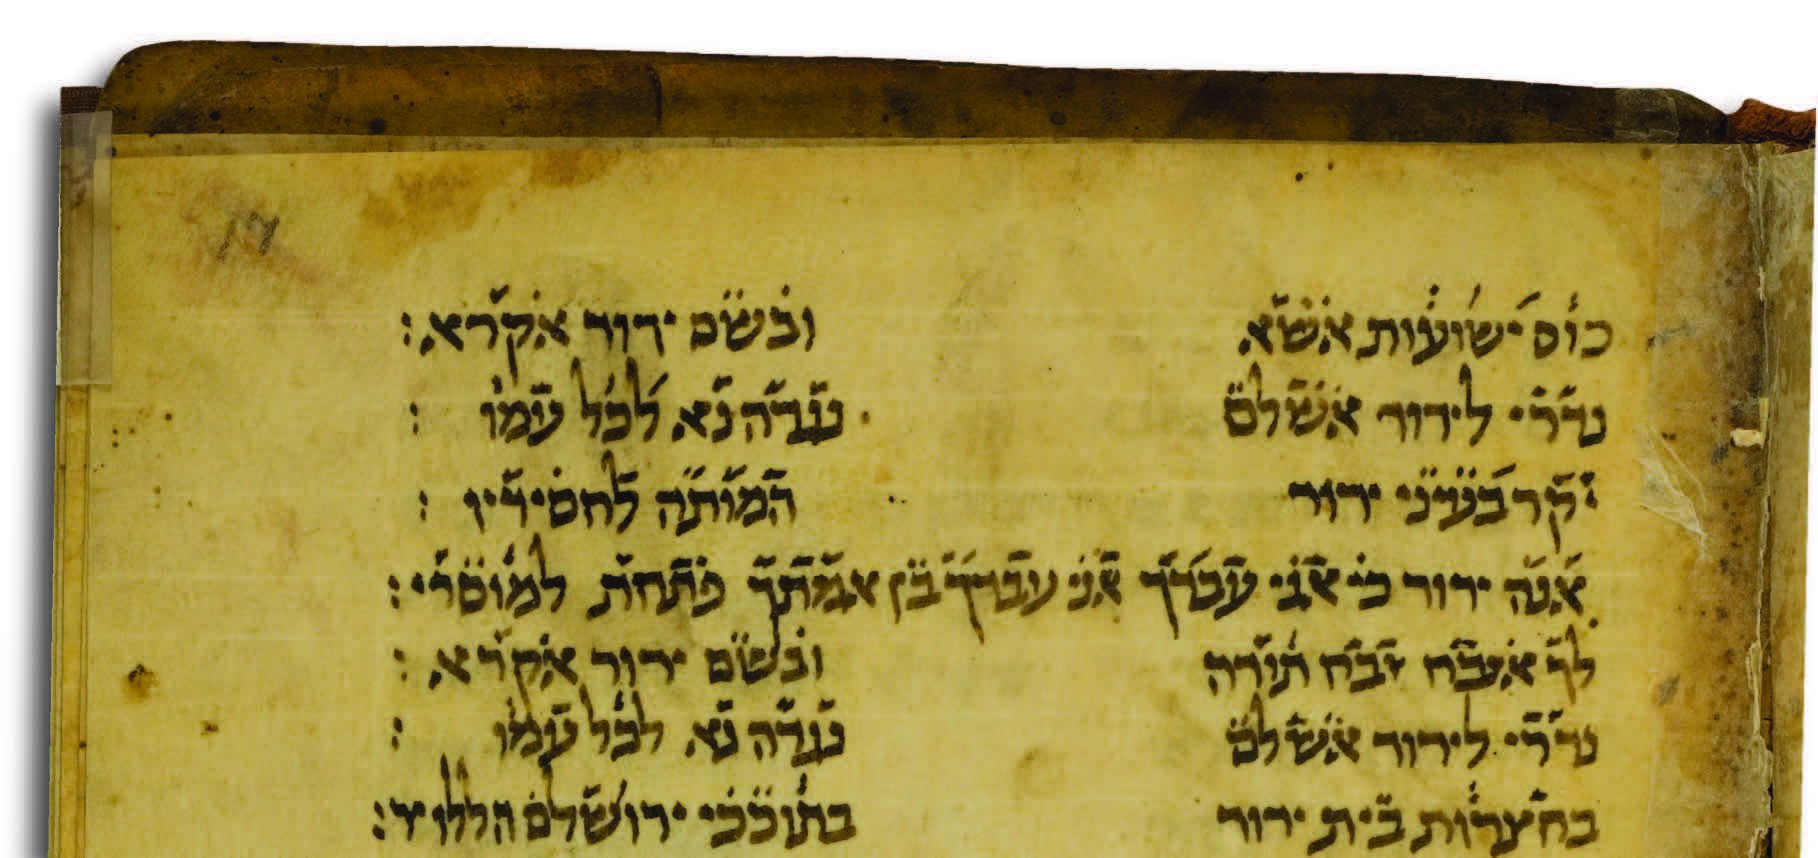 כוס ישועות אשא ובשם ידוד אקרא :
נדרי לידוד אשלם נגדה נא לכל עמו :
יקר בעיני ידוד המותה לחסידיו :
אנה ידוד כי אני עבדך אני עבדך בן אמתך פתחת למוסרי :
לך אזבח זבח תודה ובשם ידוד אקרא :
נדרי לידוד אשלם נגדה נא לכל עמו :
בחצרות בית ידוד בתוככי ירושלם הללו יד :